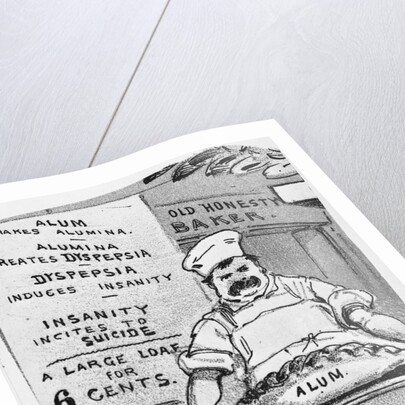 ALUM
MAKES ALUMINA.
ALUMINA
CREATES DYSPEPSIA
DYSPEPSIA
INDUCES INSANITY
INSANITY
INCITES TO
SUICIDE
A LARGE LOAF
FOR
6 CENTS.
OLD HONESTY
BAKER.
ALUM.